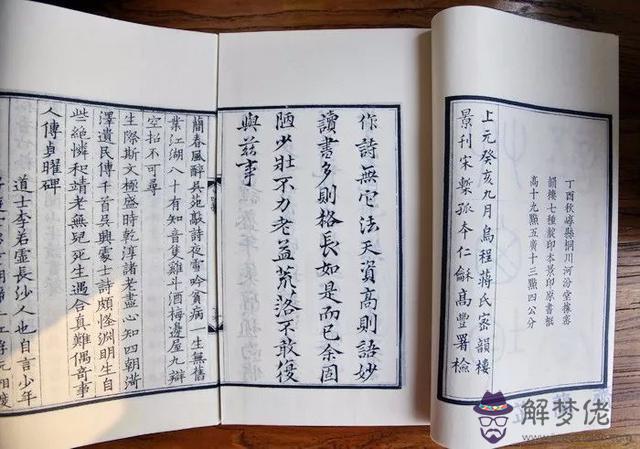 丁酉秋嶧縣桐川河汾堂據密
韻樓七種靛印本景印原書板
高十九點五廣十三點四公分
上元癸亥九月烏程蔣氏密韻樓
景刊宋槧孤本仁龢高豐署檢
作詩無它法天資高則語妙
讀書多則格長如是而已余固
陋少壯不力老益荒洛不敢復
與茲事
蘭春風醉吳苑敲詩夜雪吟貧病一生無舊
業江湖八十有知音隻雞斗酒梅邊屋九辯
空招不可尋
生際斯文極盛時乾淳諸老盡心知四朝渮
澤遺民傳千首吳興豪士詩頗怪淵明生自
些絶憐和靖老無兒死生遇合真難偶
人傳貞曜碑
道士李君虛長沙人也自言少年
解梦佬